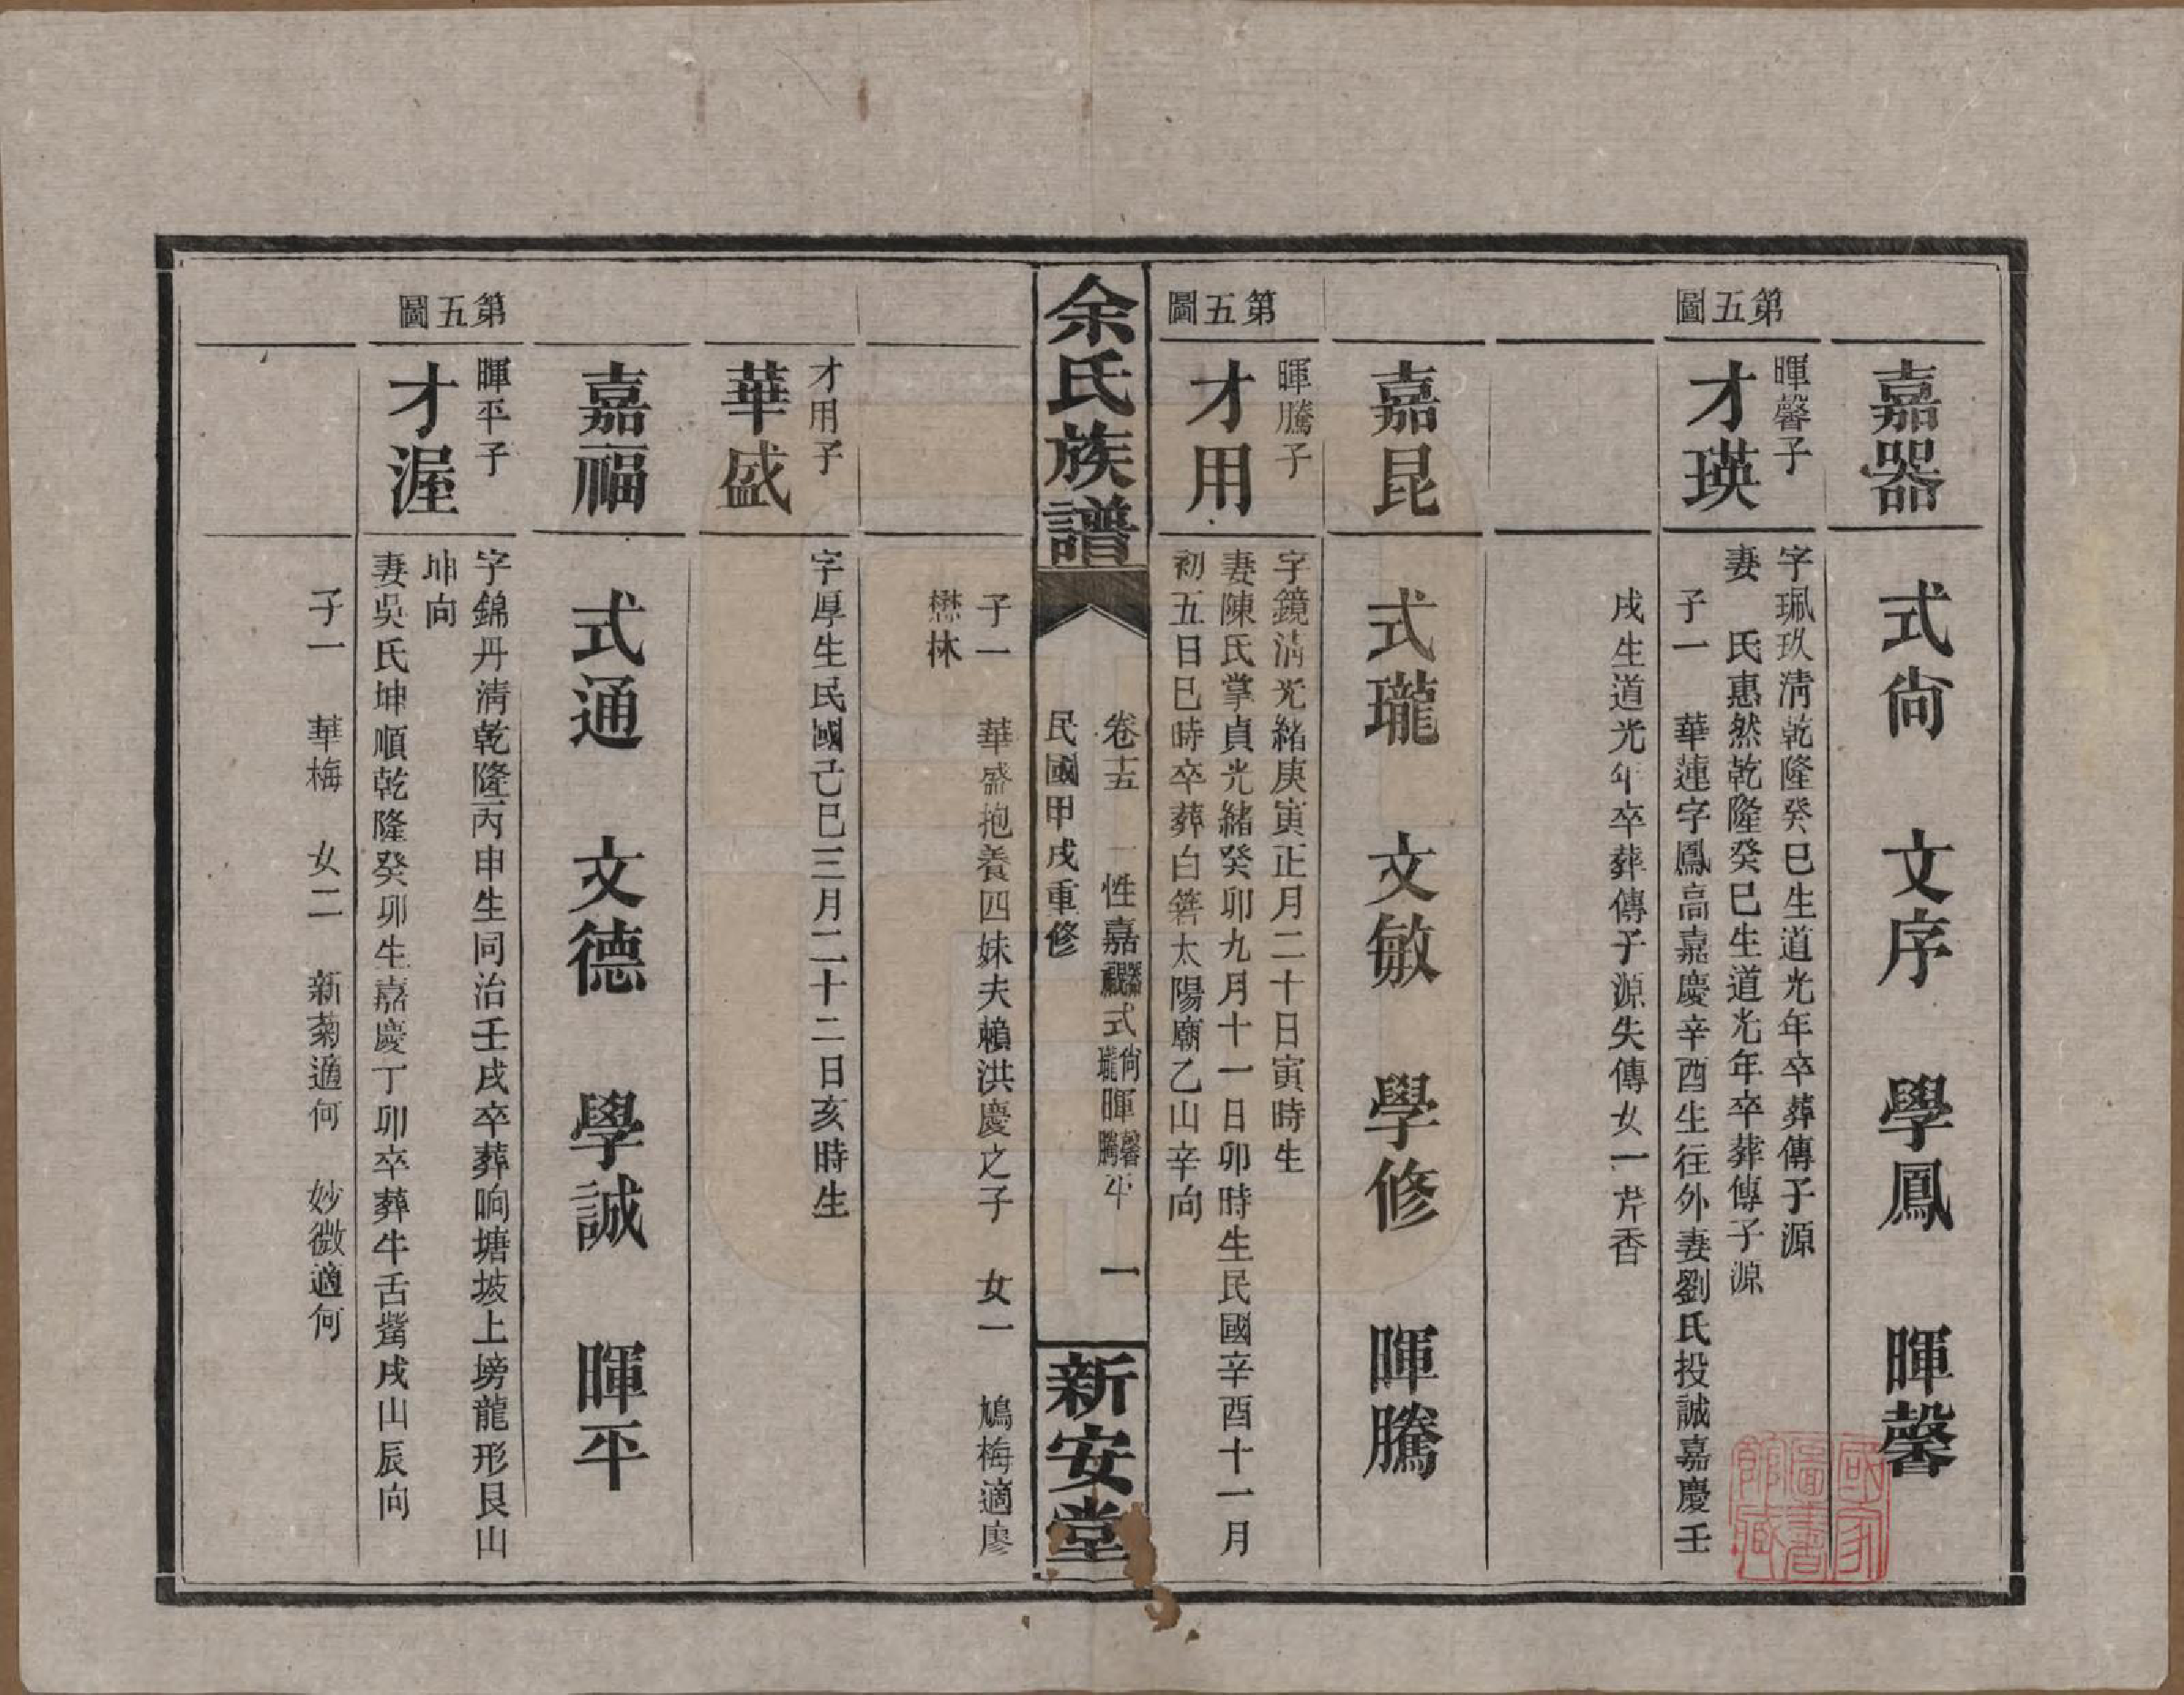 嘉器 式尙 文序 學鳳 暉馨
第五圖
暉馨子
才瑛
字珮玖淸乾隆癸巳生道光年卒葬傳子源
妻 氏惠然乾隆癸巳生道光年卒葬傳子源
子一 華蓮字鳳高嘉慶辛酉生往外妻劉氏投誠嘉慶壬
戌生道光年卒葬傳子源失傳女一芹香
嘉昆 式瓏 文敏 學修 暉騰
第五圖
暉騰子
才用
字鏡淸光緒庚寅正月二十日寅時生
妻陳氏掌貞光緒癸卯九月十一日卯時生民國辛酉十一月
初五日巳時卒葬白箬太陽廟乙山辛向
余氏族譜
卷十五 一性嘉器昆福式尙瓏暉馨騰平 一
民國甲戌重修
新安堂
子一 華盛抱養四妹夫賴洪慶之子 女一 鳩梅適廖
懋林
才用子
華盛
字厚生民國己巳三月二十二日亥時生
嘉福 式通 文德 學誠 暉平
第五圖
暉平子
才渥
字錦丹淸乾隆丙申生同治壬戌卒葬响塘坡上塝龍形艮山
坤向
妻吳氏坤順乾隆癸卯生嘉慶丁卯卒葬牛舌觜戌山辰向
子一 華梅 女二 新菊適何 妙微適何
國家圖書館藏